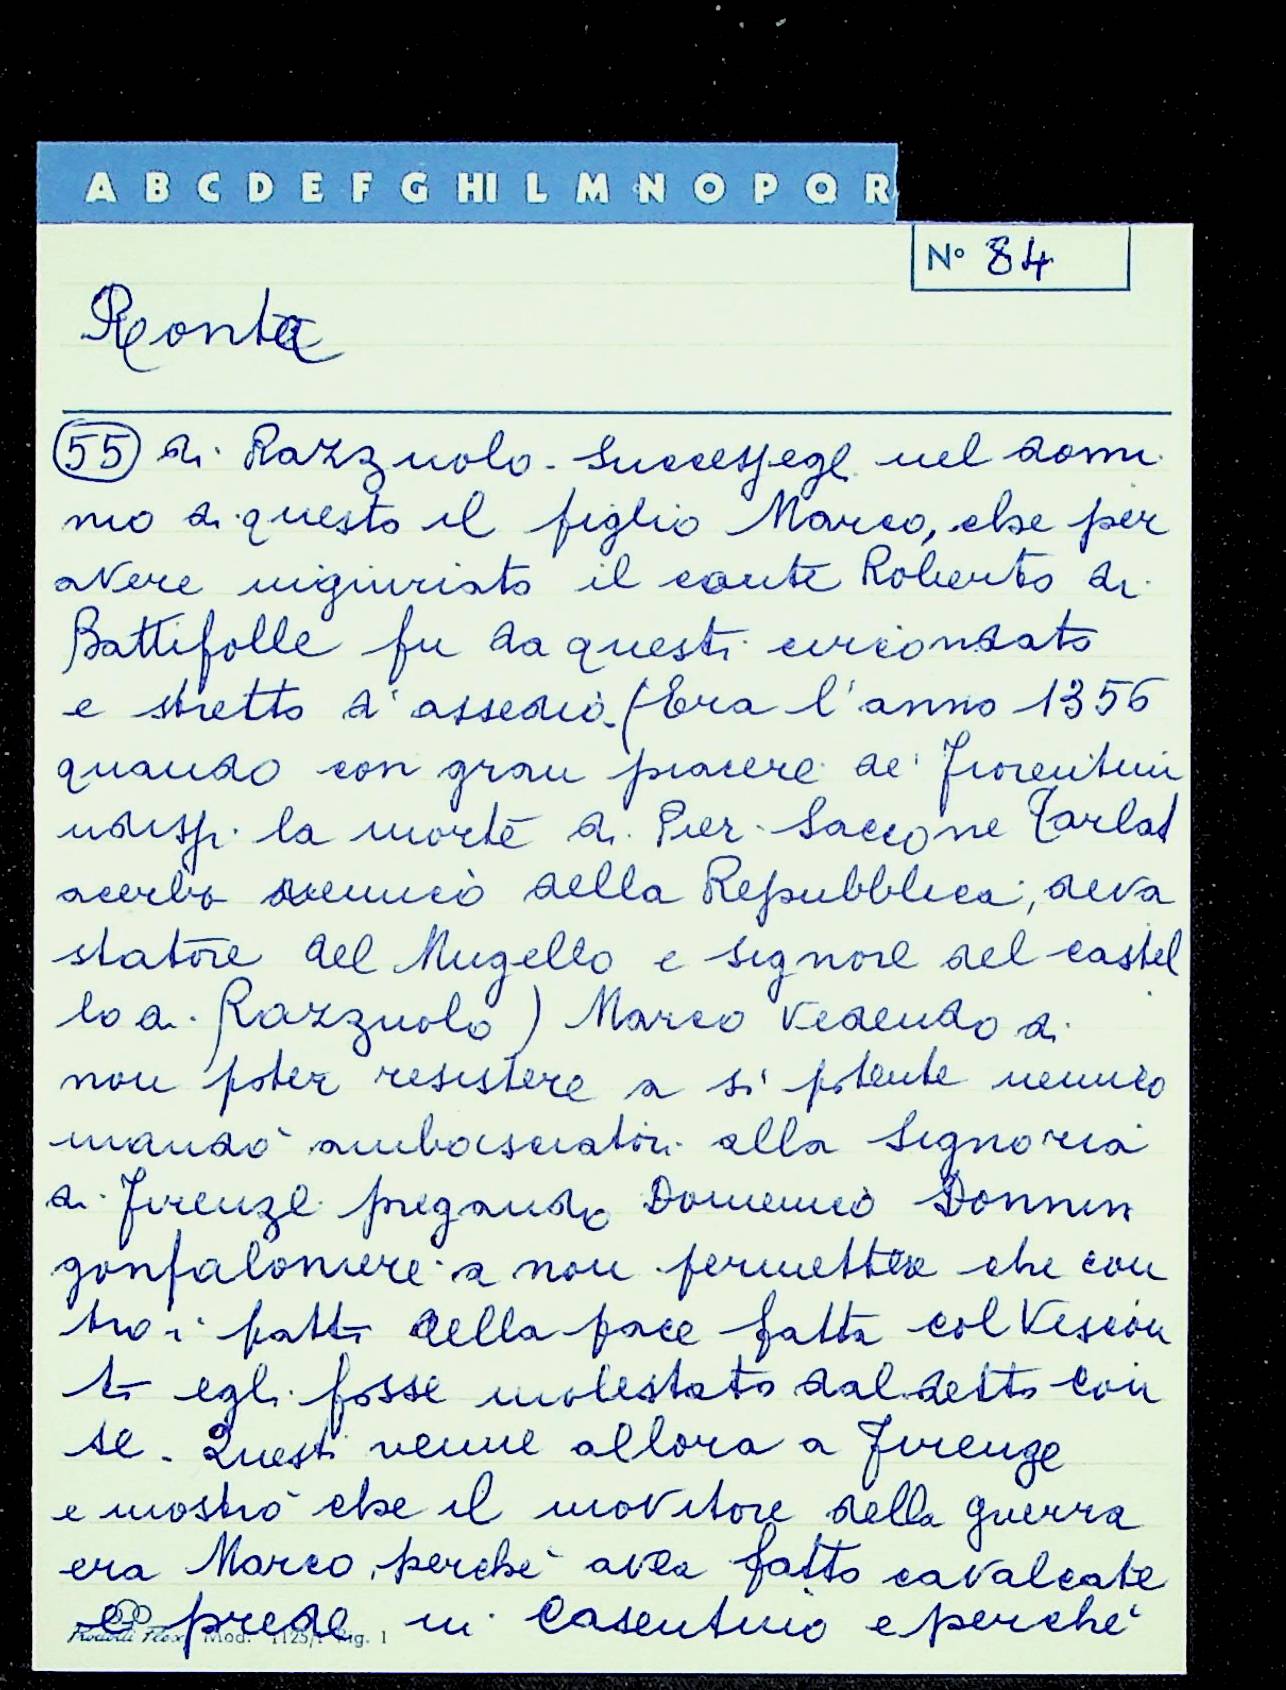 A B C D E F G HI L M N O P Q R
N° 84
Ronta
55 di Razzuolo. Successegl nel domi
nio di questo il figlio Marco, che per
avere ingiuriato il conte Roberto di
Battifolle fu da questi circondato
e stretto d'assedio. (Era l'anno 1356
quando con gran piacere de' Fiorentini
udissi la morte di Pier Saccone Tarlat
acerbo nemico della Repubblica, deva
statore del Mugello e signore del castel
lo di Razzuolo) Marco vedendo di
non poter resistere a sì potente nemico
mandò ambasciatori alla Signoria
di Firenze pregando Domenico Donnin
gonfaloniere a non permettere che con
tro i patti della pace fatta col Viscon
ti egli fosse molestato dal detto Con
te. Questi venne allora a Firenze
e mostrò che il movitore della guerra
era Marco, perché avea fatto cavalcate
e prede in Casentino e perché
Mod. 1125/ Rig. 1